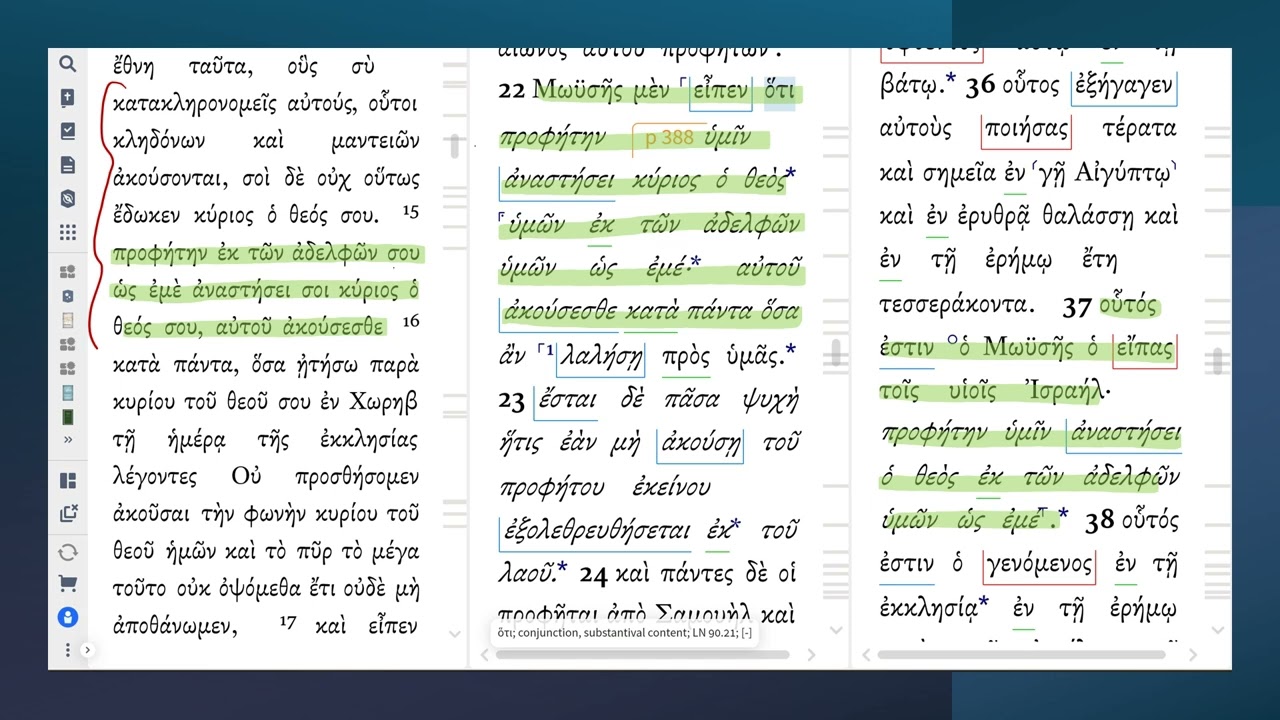 ἔθνη ταῦτα, οὓς σὺ
κατακληρονομεῖς αὐτούς, οὗτοι
κληδόνων καὶ μαντειῶν
ἀκούσονται, σοὶ δὲ οὐχ οὕτως
ἔδωκεν κύριος ὁ θεός σου. 15
προφήτην ἐκ τῶν ἀδελφῶν σου
ὡς ἐμὲ ἀναστήσει σοι κύριος ὁ
θεός σου, αὐτοῦ ἀκούσεσθε 16
κατὰ πάντα, ὅσα ᾐτήσω παρὰ
κυρίου τοῦ θεοῦ σου ἐν Χωρηβ
τῇ ἡμέρᾳ τῆς ἐκκλησίας
λέγοντες Οὐ προσθήσομεν
ἀκοῦσαι τὴν φωνὴν κυρίου τοῦ
θεοῦ ἡμῶν καὶ τὸ πῦρ τὸ μέγα
τοῦτο οὐκ ὀψόμεθα ἔτι οὐδὲ μὴ
ἀποθάνωμεν, 17 καὶ εἶπεν
αἰῶνος αὐτοῦ προφητῶν.
22 Μωϋσῆς μὲν ⸀εἶπεν ὅτι
προφήτην p 388 ὑμῖν
ἀναστήσει κύριος ὁ θεὸς*
⸀ὑμῶν ἐκ τῶν ἀδελφῶν
ὑμῶν ὡς ἐμέ·* αὐτοῦ
ἀκούσεσθε κατὰ πάντα ὅσα
ἂν ⸀1λαλήσῃ πρὸς ὑμᾶς.*
23 ἔσται δὲ πᾶσα ψυχὴ
ἥτις ἐὰν μὴ ἀκούσῃ τοῦ
προφήτου ἐκείνου
ἐξολεθρευθήσεται ἐκ* τοῦ
λαοῦ.* 24 καὶ πάντες δὲ οἱ
προφῆται ἀπὸ Σαμουὴλ καὶ
ὅτι; conjunction, substantival content; LN 90.21; [-]
ἐν τῇ
βάτῳ.* 36 οὗτος ἐξήγαγεν
αὐτοὺς ποιήσας τέρατα
καὶ σημεῖα ἐν ⸂γῇ Αἰγύπτῳ⸃
καὶ ἐν ἐρυθρᾷ θαλάσσῃ καὶ
ἐν τῇ ἐρήμῳ ἔτη
τεσσεράκοντα. 37 οὗτός
ἐστιν ⸰ὁ Μωϋσῆς ὁ εἴπας
τοῖς υἱοῖς Ἰσραήλ·
προφήτην ὑμῖν ἀναστήσει
ὁ θεὸς ἐκ τῶν ἀδελφῶν
ὑμῶν ὡς ἐμέ⸆.* 38 οὗτός
ἐστιν ὁ γενόμενος ἐν τῇ
ἐκκλησίᾳ* ἐν τῇ ἐρήμῳ